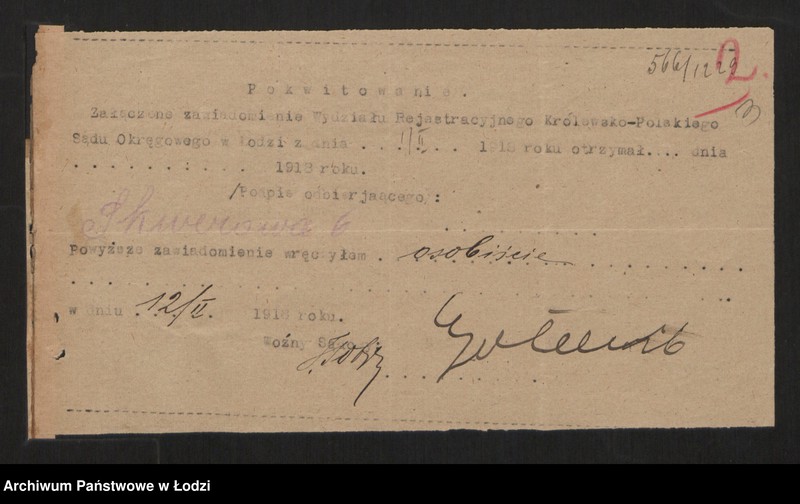 2.
566/1229
3
Pokwitowanie.
Załączone zawiadomienie Wydziału Rejestracyjnego Królewsko-Polskiego
Sądu Okręgowego w Łodzi z dnia . . . 1/II . . . 1918 roku otrzymał.... dnia
. . . . . . . . . . . 1918 roku.
/Podpis odbierjącego/:
6
Powyższe zawiadomienie wręczyłem . osobiście . . . . . . . . . .
w dniu . 12/II. 1918 roku.
Woźny Sądu
Archiwum Państwowe w Łodzi